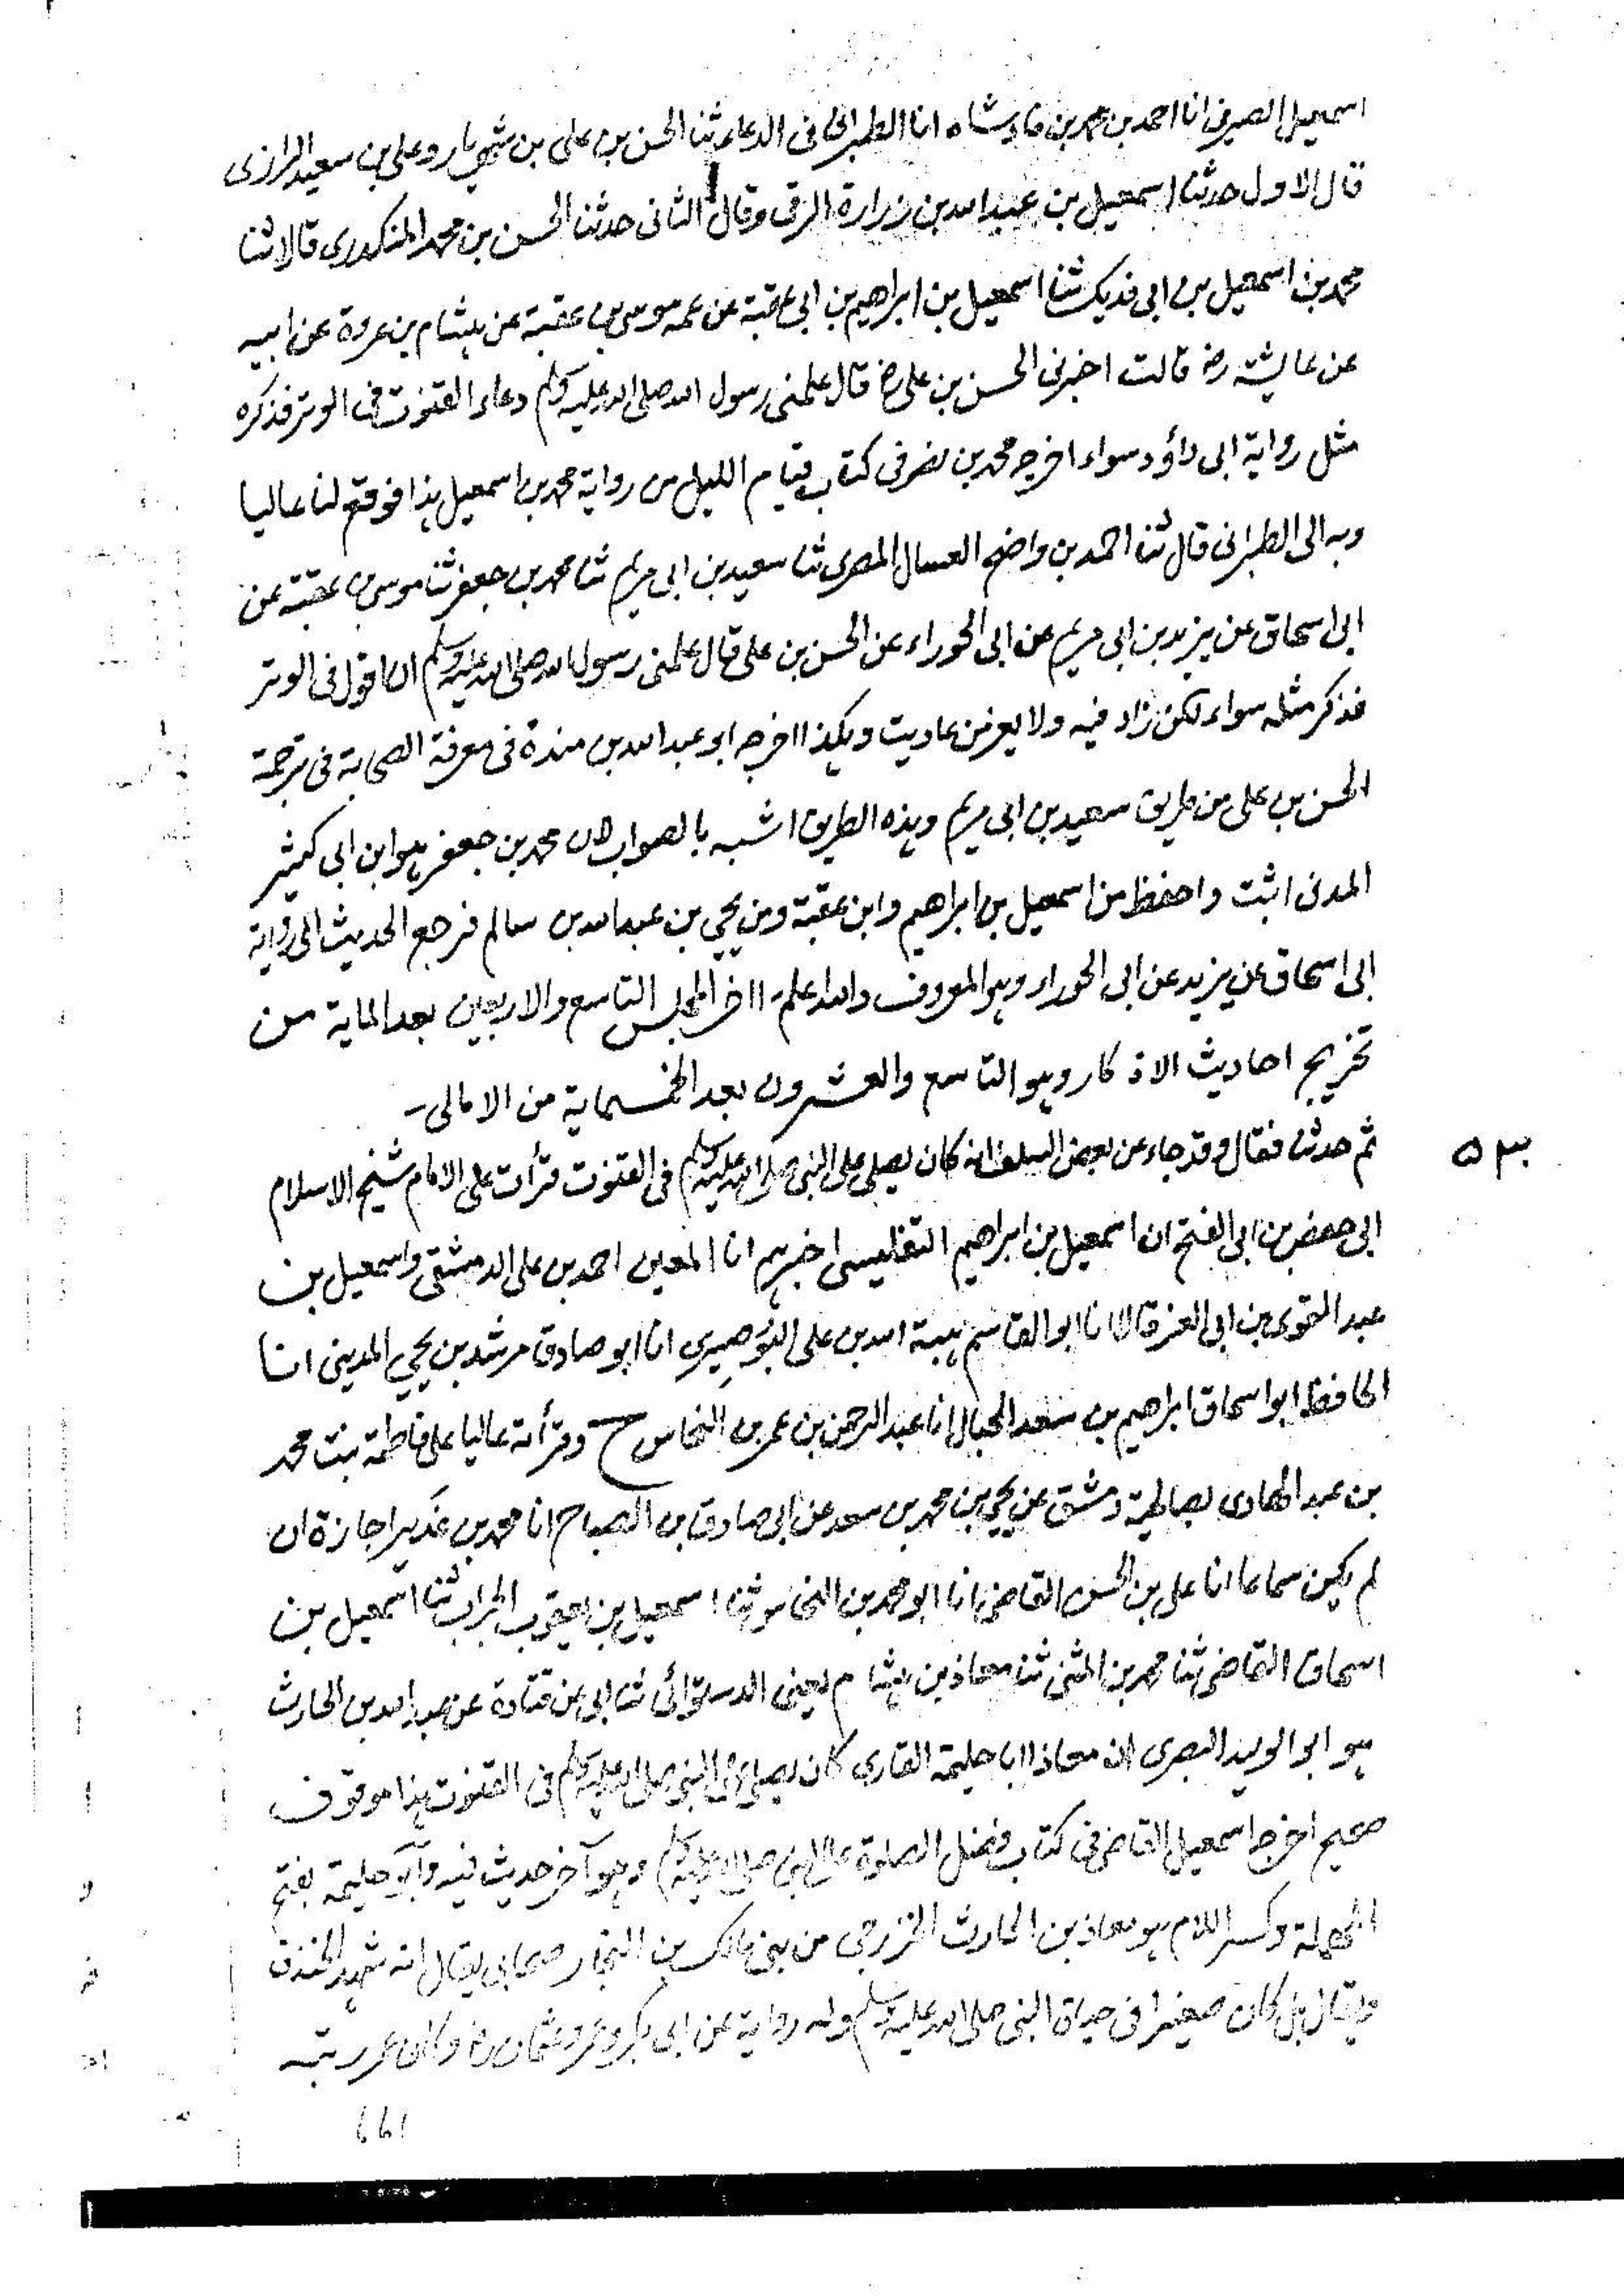 اسمعيل الصيرفى انا احمد بن محمد بن فاذشاه انا الطبرانى فى الدعاء ثنا الحسن بن على بن شهريار وعلى بن سعيد الرازى
قال الاول حدثنا اسمعيل بن عبيد الله بن زرارة الرقى وقال الثانى حدثنا الحسن بن محمد المنكدرى قالا ثنا
محمد بن اسمعيل بن ابى فديك ثنا اسمعيل بن ابراهيم بن ابى عقبة عن عمه موسى بن عقبة عن هشام بن عروة عن ابيه
عن عايشة رض قالت اخبرنى الحسن بن على رض قال علمنى رسول الله صلى الله عليه وسلم دعاء القنوت فى الوتر فذكره
مثل رواية ابى داؤد سواء اخرجه محمد بن نصر فى كتاب قيام الليل من رواية محمد بن اسمعيل هذا فوقع لنا عاليا
وبه الى الطبرانى قال ثنا احمد بن واضح العسال المصرى ثنا سعيد بن ابى مريم ثنا محمد بن جعفر ثنا موسى بن عقبة عن
ابى اسحاق عن يزيد بن ابى مريم عن ابى الحوراء عن الحسن بن على قال علمنى رسول الله صلى الله عليه وسلم ان اقول فى الوتر
فذكر مثله سواء لكن زاد فيه ولا يعز من عاديت وهكذا اخرجه ابو عبد الله بن مندة فى معرفة الصحابة فى ترجمة
الحسن بن على من طريق سعيد بن ابى مريم وهذه الطريق اشبه بالصواب لان محمد بن جعفر هو ابن ابى كثير
المدنى اثبت واحفظ من اسمعيل بن ابراهيم وابن عقبة ومن يحيى بن عبد الله بن سالم فرجع الحديث الى رواية
ابى اسحاق عن يزيد عن ابى الحوراء وهو المعروف والله اعلم - اخر المجلس التاسع والاربعين بعد الماية من
تخريج احاديث الاذكار وهو التاسع والعشرون بعد الخمسماية من الامالى -
٥٣٠ ثم حدثنا فقال وقد جاء عن بعض السلف انه كان يصلى على النبى صلى الله عليه وسلم فى القنوت قرأت على الامام شيخ الاسلام
ابى حفص بن ابى الفتح ان اسمعيل بن ابراهيم التفليسى اخبرهم انا المعين احمد بن على الدمشقى واسمعيل بن
عبد القوى بن ابى العز قالا انا ابو القاسم هبة الله بن على البُوصِيرى انا ابو صادق مرشد بن يحيى المدينى انا
الحافظ ابو اسحاق ابراهيم بن سعد الحبال انا عبد الرحمن بن عمر بن النحاس ح وقرأته عاليا على فاطمة بنت محمد
بن عبد الهادى بصالحية دمشق عن يحيى بن محمد بن سعد عن ابى صادق بن الصباح انا محمد بن غدير اجازة ان
لم يكن سماعا انا على بن الحسن القاضى انا ابو محمد بن النحاس ثنا اسمعيل بن يعقوب الجراب ثنا اسمعيل بن
اسحاق القاضى ثنا محمد بن المثنى ثنا معاذ بن هشام يعنى الدستوائى ثنا ابى عن قتادة عن عبد الله بن الحارث
هو ابو الوليد البصرى ان معاذا ابا حليمة القارى كان يصلى على النبى صلى الله عليه وسلم فى القنوت هذا موقوف
صحيح اخرجه اسمعيل القاضى فى كتاب فضل الصلوة على النبى صلى الله عليه وسلم وهو آخر حديث فيه وابو حليمة بفتح
المهملة وكسر اللام هو معاذ بن الحارث الخزرجى من بنى مالك بن النجار صحابى يقال انه شهد الخندق
ويقال بل كان صغيرا فى حياة النبى صلى الله عليه وسلم وله رواية عن ابى بكر وعمر وعثمان رض وكان عمر رتبه